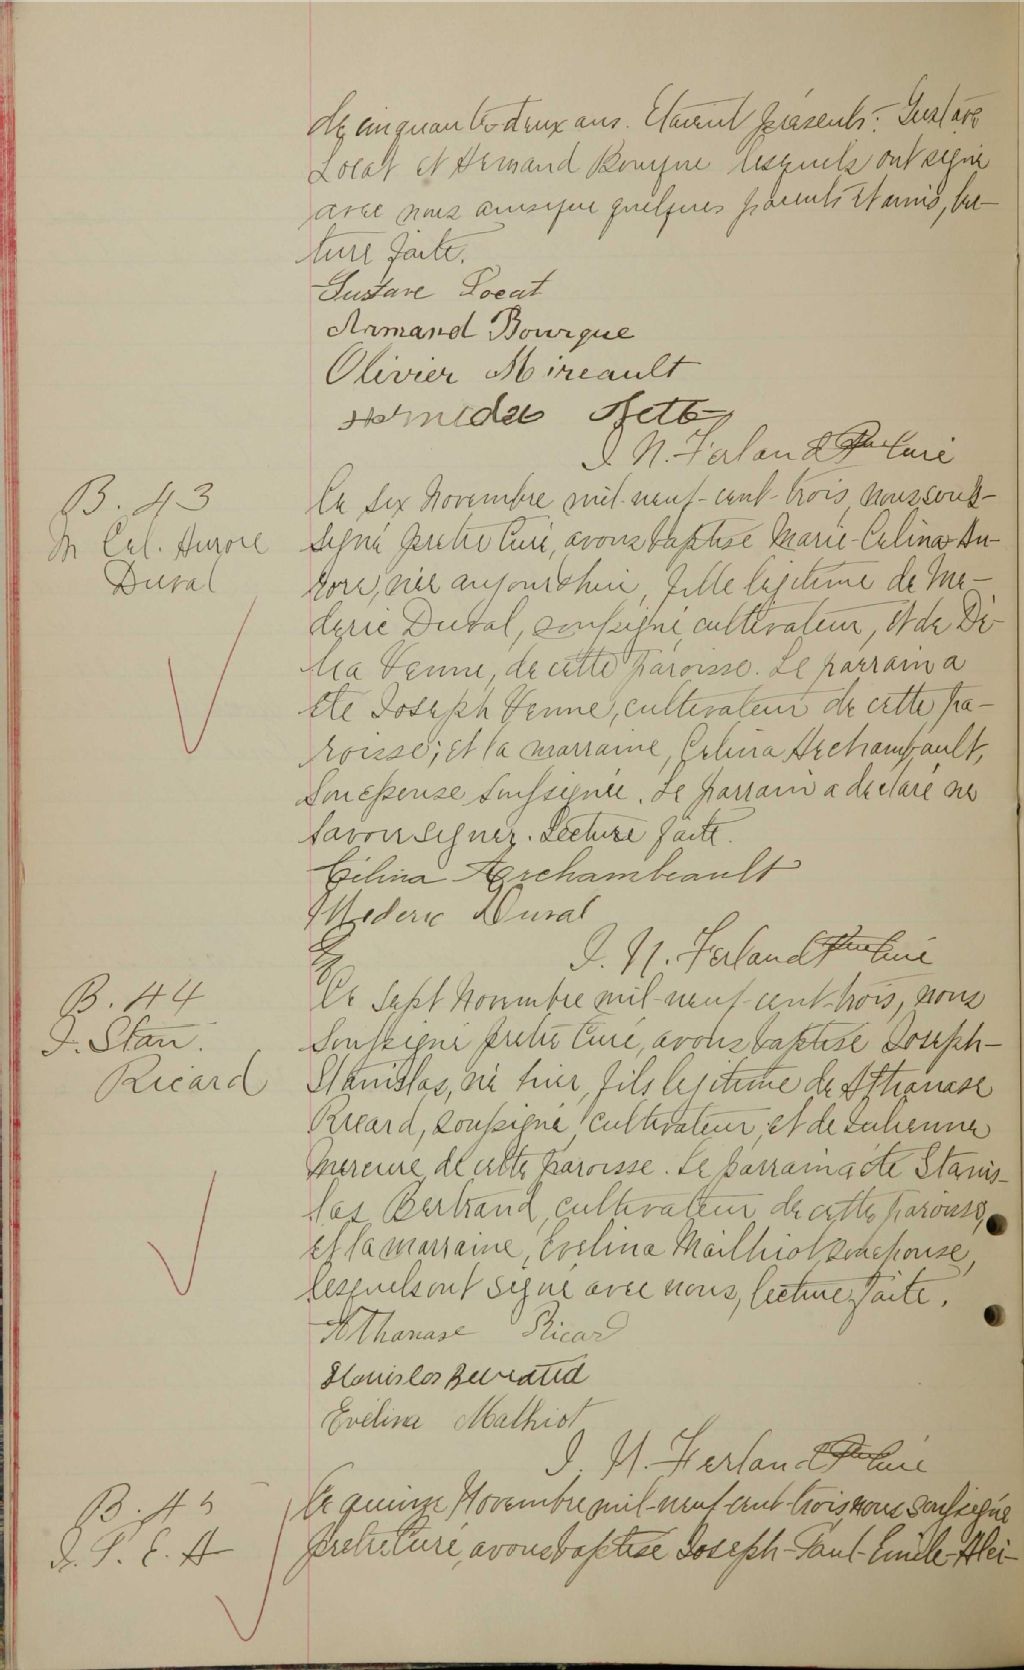 de cinquante-deux ans. Etaient présents: Gustave
Locat et Armand Bourque lesquels ont signé
avec nous ainsique quelques parents et amis, lec-
ture faite.
Gustave Locat
Armand Bourque
Olivier Mireault
J. N. Ferland Ptre Curé
B. 43
M Cel. Aurore
Duval
Ce six Novembre mil-neuf-cent-trois, nous sous-
signé pretre Curé, avons baptisé Marie-Celina-Au-
rore, née aujourdhui, fille légitime de Me-
deric Duval, soussigné, cultivateur, et de Dé-
lia Venne, de cette paroisse. Le parrain a
été Joseph Venne, cultivateur de cette pa-
roisse; et la marraine, Celina Archambault,
son epouse soussignée. Le parrain a declaré ne
savoir signer. Lecture faite.
Célina Archambeault
Mederic Duval
J. N. Ferland Ptre Curé
B. 44
J. Stan.
Ricard
Ce sept Novembre mil-neuf-cent-trois, nous
soussigné pretre Curé, avons baptisé Joseph-
Stanislas, né hier, fils legitime de Athanase
Ricard, soussigné, cultivateur, et de Julienne
Mercure, de cette paroisse. Le parrain a été Stanis-
las Bertrand, cultivateur de cette paroisse,
et la marraine, Evelina Mailhiot, son epouse,
lesquels ont signé avec nous, lecture faite.
Athanase Ricard
Stanislas Bertrand
Evélina Mathiot
J. N. Ferland Ptre Curé
B. 45
J. P. E. A
Ce quinze Novembre mil-neuf-cent-trois, nous soussigné
pretre Curé, avons baptisé Joseph-Paul-Emile-Alci-